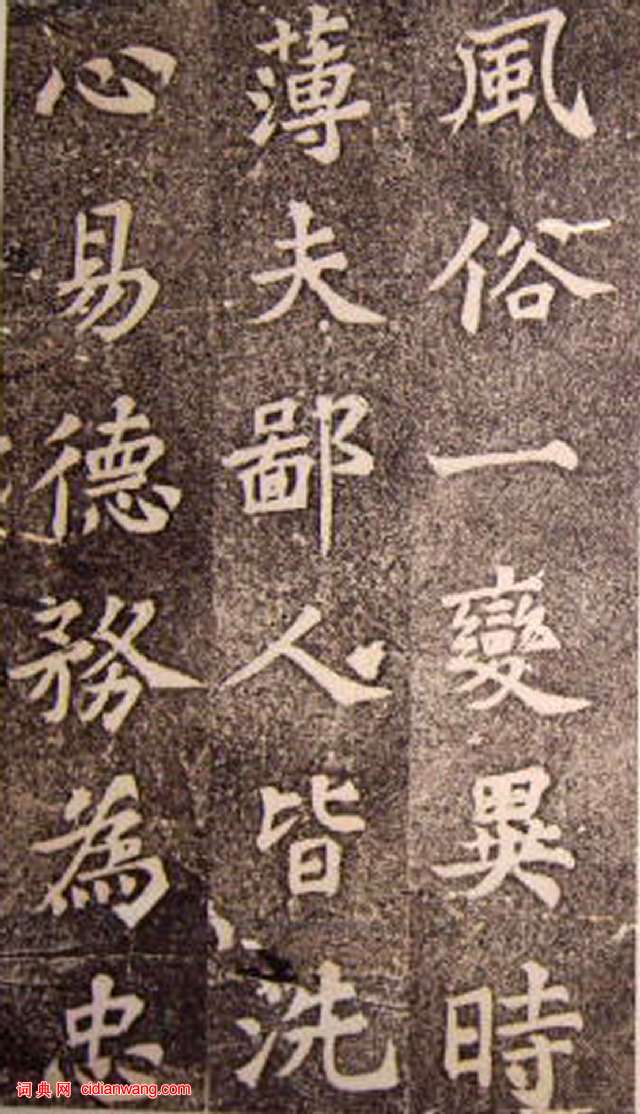 風俗一變異時
薄夫鄙人皆洗
心易德務為忠
词典网 cidianwang.com